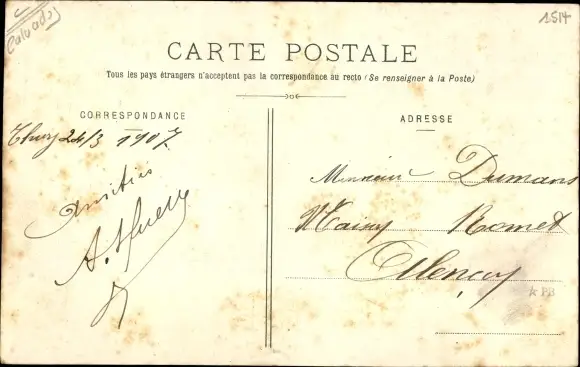 Calvados
1514
CARTE POSTALE
Tous les pays étrangers n'acceptent pas la correspondance au recto (Se renseigner à la Poste)
CORRESPONDANCE
24/3 1907
Amitiés
ADRESSE
Monsieur Dumans
Romet
Alençon
PB